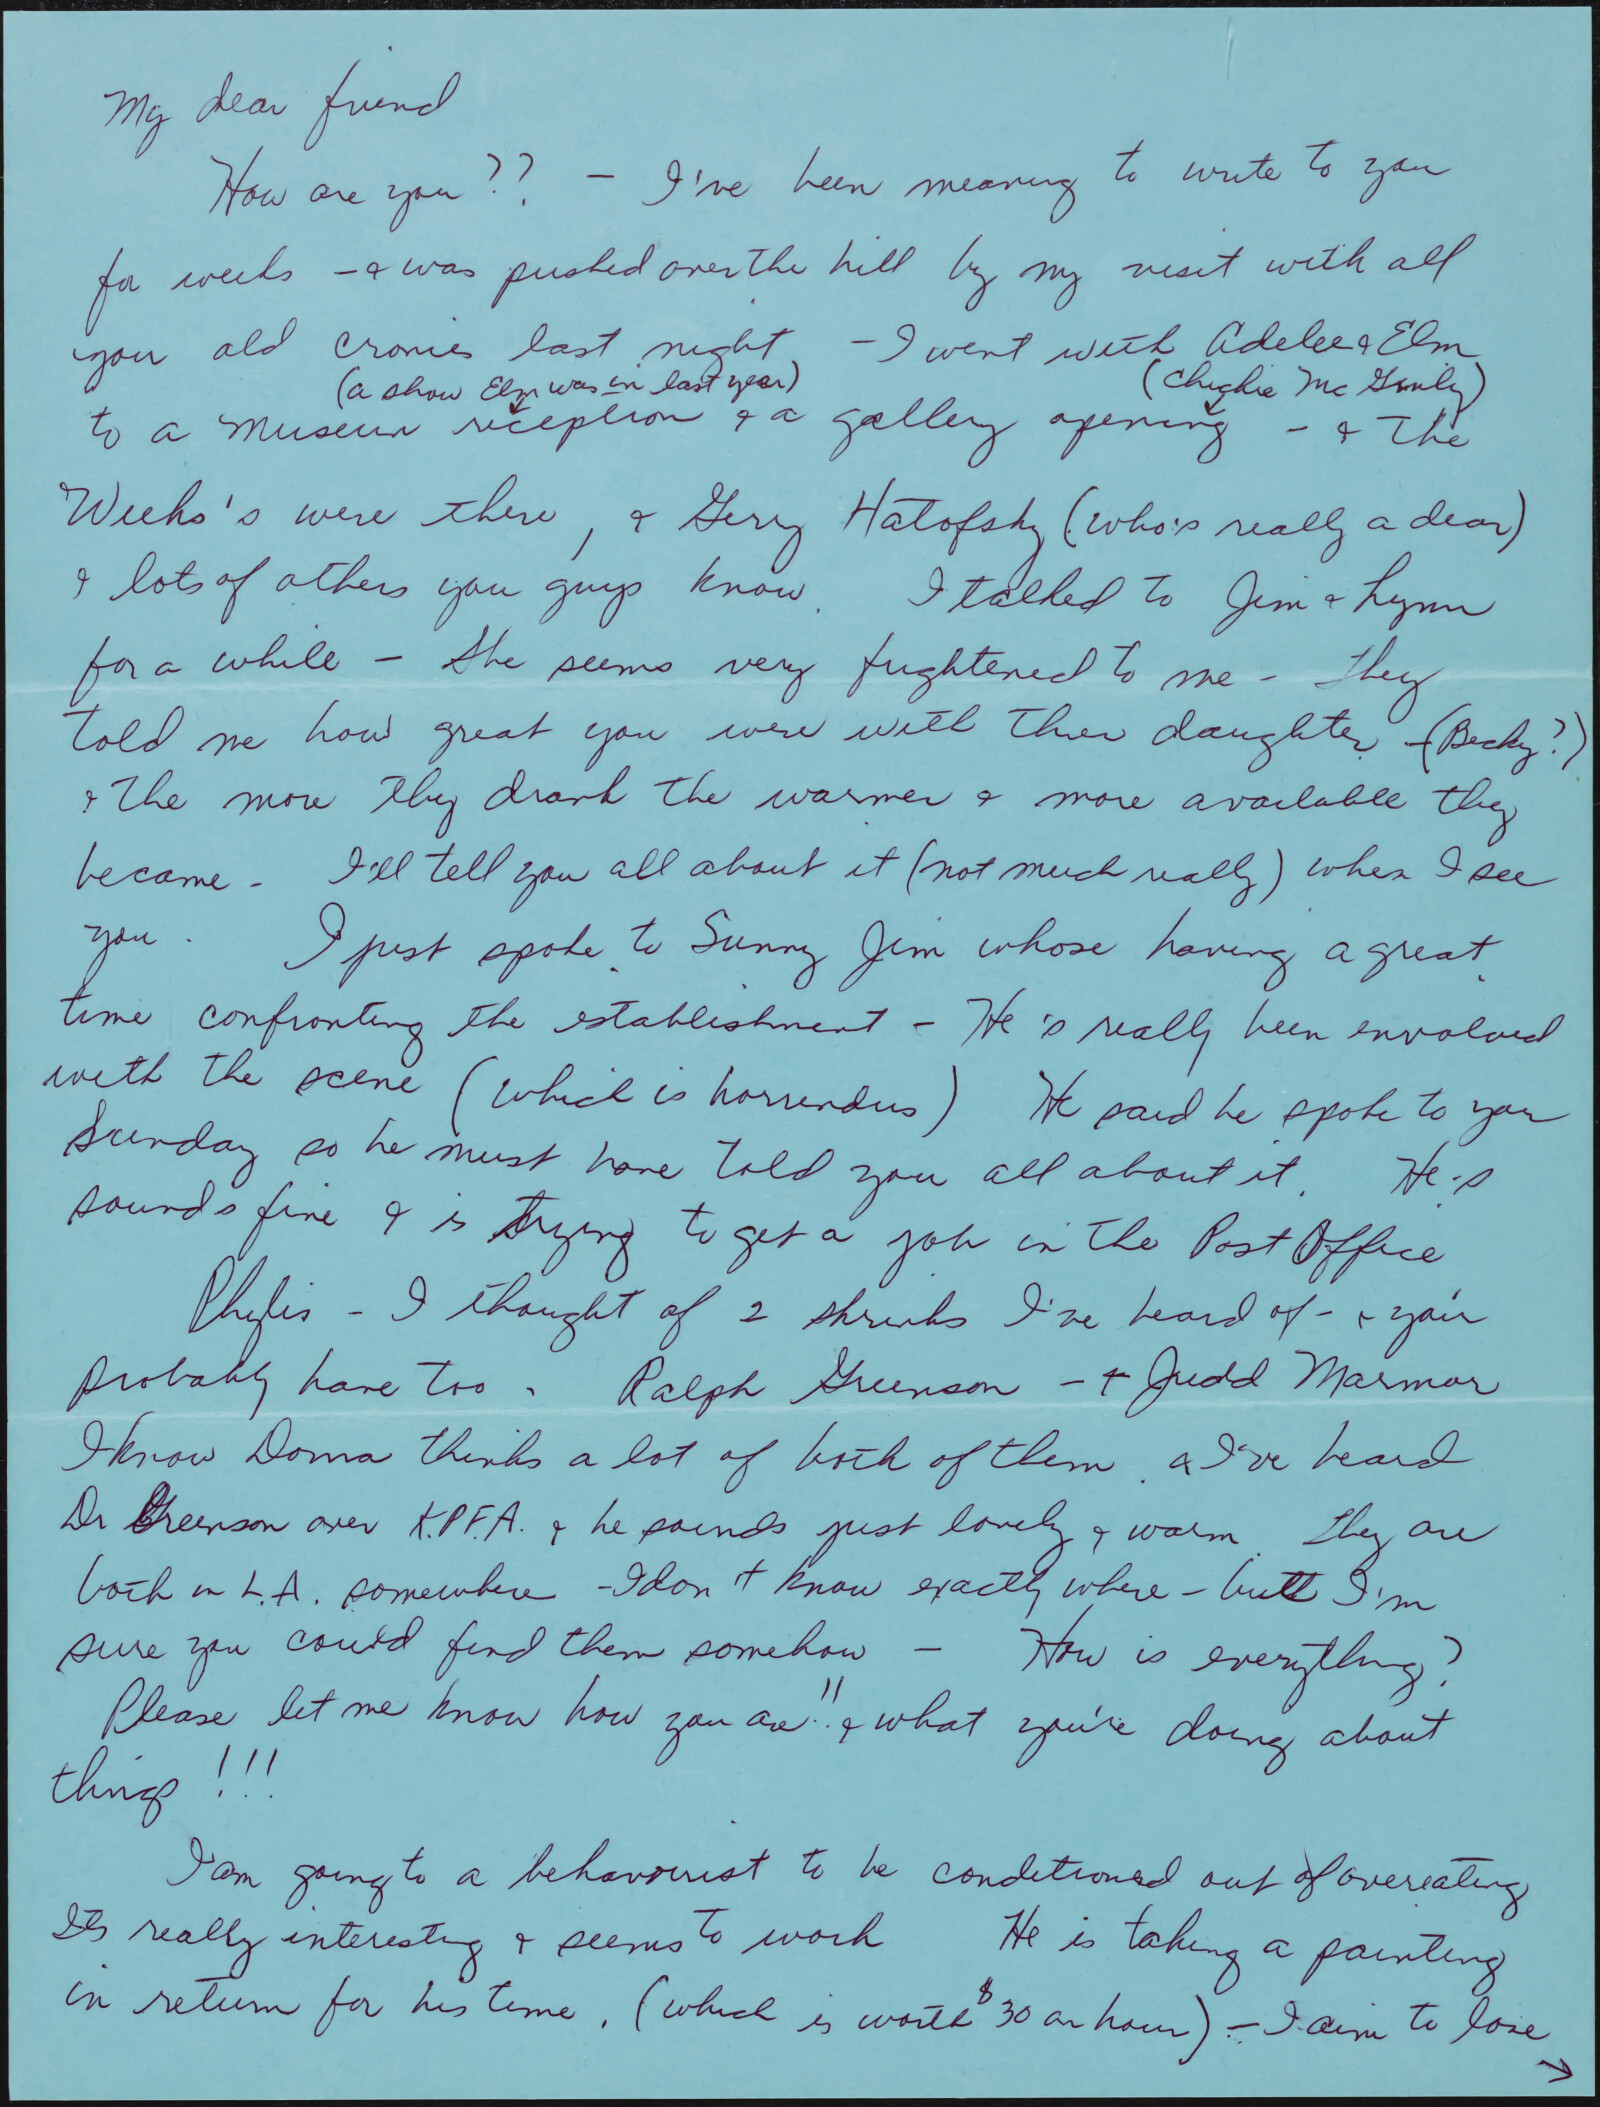 My dear friend
How are you?? - I've been meaning to write to you
for weeks - & was pushed over the hill by my visit with all
your old cronies last night - I went with Adelee & Elm
(a show Elm was in last year) (Chickie Mc Ginly)
to a Museum reception & a gallery opening - & the
Weeks's were there, & Gerry Hatofsky (who's really a dear)
& lots of others you guys know. I talked to Jim & Lynn
for a while - She seems very frightened to me - they
told me how great you were with their daughter - (Becky?)
& the more they drank the warmer & more available they
became - I'll tell you all about it (not much really) when I see
you. I just spoke to Sunny Jim whose having a great
time confronting the establishment - He's really been envolved
with the scene (which is horrendus) He said he spoke to you
Sunday so he must have told you all about it. He's
sounds fine & is trying to get a job in the Post Office
Phylis - I thought of 2 shrinks I've heard of - & you
probably have too - Ralph Greenson - & Judd Marmor
I know Donna thinks a lot of both of them & I've heard
Dr Greenson over K.P.F.A. & he sounds just lovely & warm. They are
both in L.A. somewhere - I don't know exactly where - but I'm
sure you could find them somehow - How is everything?
Please let me know how you are!! & what you're doing about
things!!!
I am going to a behaviourist to be conditioned out of overeating
Its really interesting & seems to work He is taking a painting
in return for his time. (which is worth $30 an hour) - I aim to lose
→